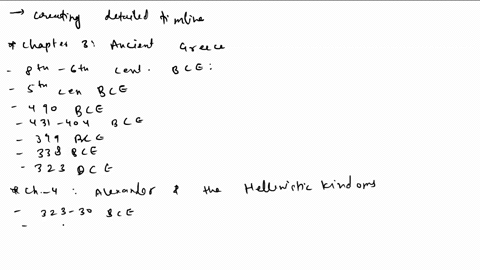 → creating detailed timline
* Chapter 3: Ancient Greece
- 8th - 6th cent. BCE:
- 5th cen BCE
- 490 BCE
- 431-404 BCE
- 399 BCE
- 338 BCE
- 323 BCE
* Ch-4: Alexander & the Hellenistic Kindoms
- 323-30 BCE
-